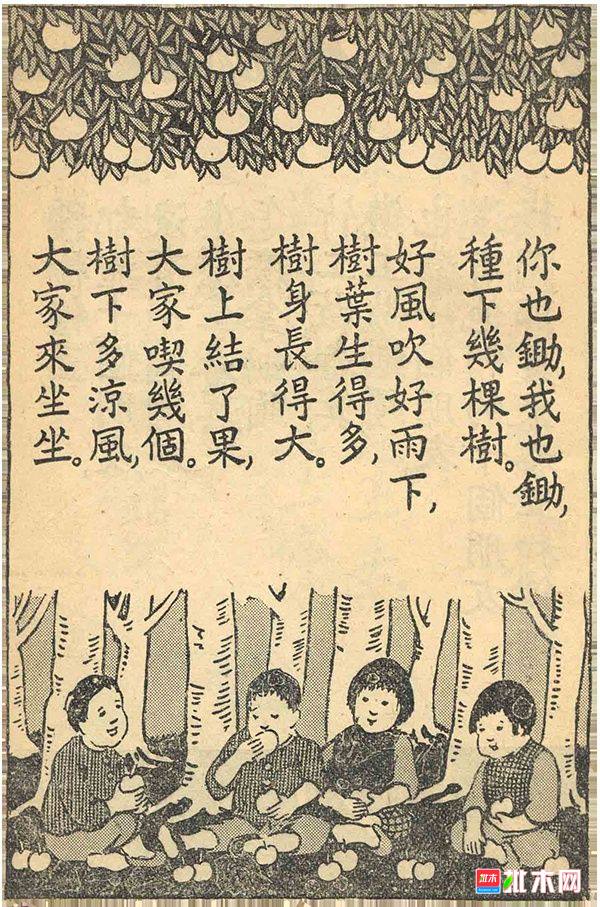 你也鋤,我也鋤,
種下幾棵樹。
好風吹好雨下,
樹葉生得多,
樹身長得大。
樹上結了果,
大家喫幾個。
樹下多涼風,
大家來坐坐。
批木网